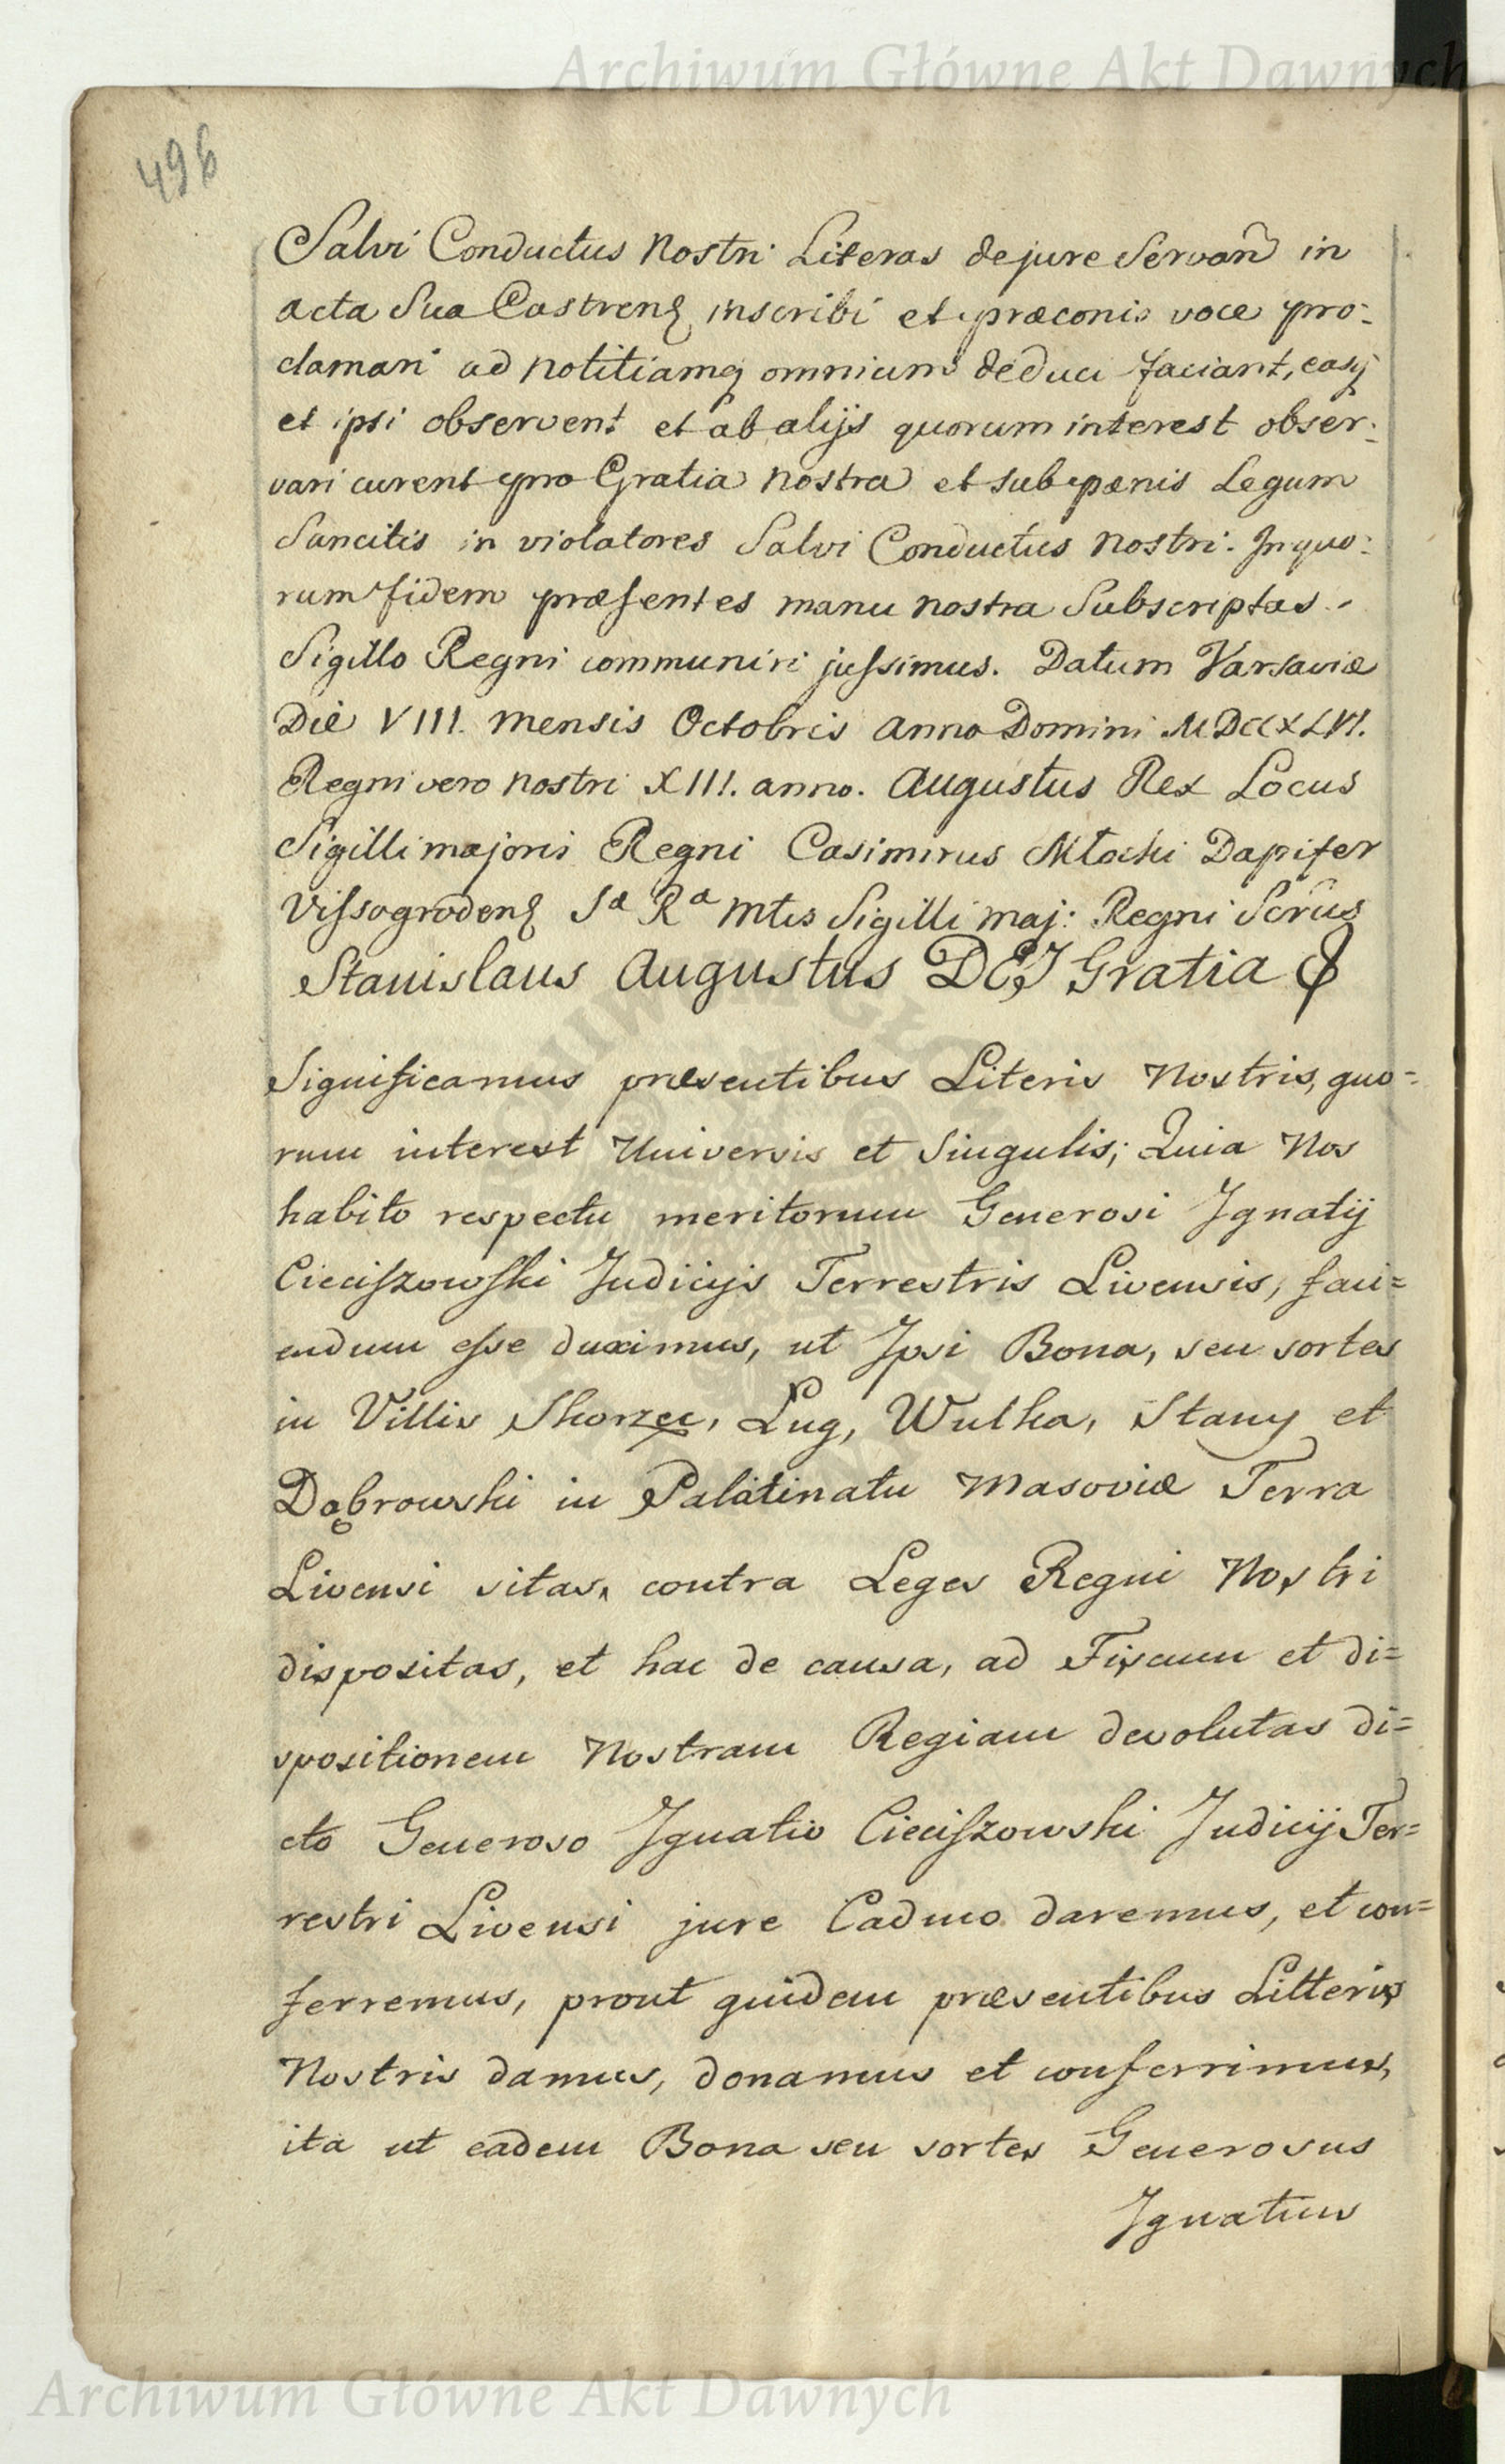 Archiwum Główne Akt Dawnych
496
Salvi Conductus Nostri Literas de jure Servan in
acta Sua Castrenẜ inscribi et præconis voce pro-
clamari ad notitiamq omnium deduci faciant, easq
et ipsi observent et ab alijs quorum interest obser-
vari curent pro Gratia nostra et sub pœnis Legum
Sancitis in violatores Salvi Conductus nostri. In quo-
rum fidem præsentes manu nostra Subscriptas
Sigillo Regni communiri jussimus. Datum Varsaviæ
Die VIII. mensis Octobris Anno Domini MDCCXLVI.
Regni vero nostri XIII. anno. Augustus Rex Locus
Sigilli majoris Regni Casimirus Młocki Dapifer
Vissogrodenẜ Sæ Ræ Mtis Sigilli maj: Regni Scrius
Stanislaus Augustus DEJ Gratia &
Significamus præsentibus Literis Nostris, quo=
rum interest Universis et Singulis; Quia Nos
habito respectu meritorum Generosi Jgnatij
Cieciszowski Judicijs Terrestris Livensis, faci=
endum esse duximus, ut Jpsi Bona, seu sortes
in Villis Skorzec, Ług, Wulka, Stany et
Dąbrowski in Palatinatu Masoviæ Terra
Livensi sitas, contra Leges Regni Nostri
dispositas, et hac de causa, ad Fiscum et di=
spositionem Nostram Regiam devolutas di=
cto Generoso Jgnatio Cieciszowski Judicij Ter=
restri Livensi jure Caduco daremus, et con=
ferremus, prout quidem præsentibus Litteris
Nostris damus, donamus et conferrimus,
ita ut eadem Bona seu sortes Generosus
Jgnatius
Archiwum Główne Akt Dawnych